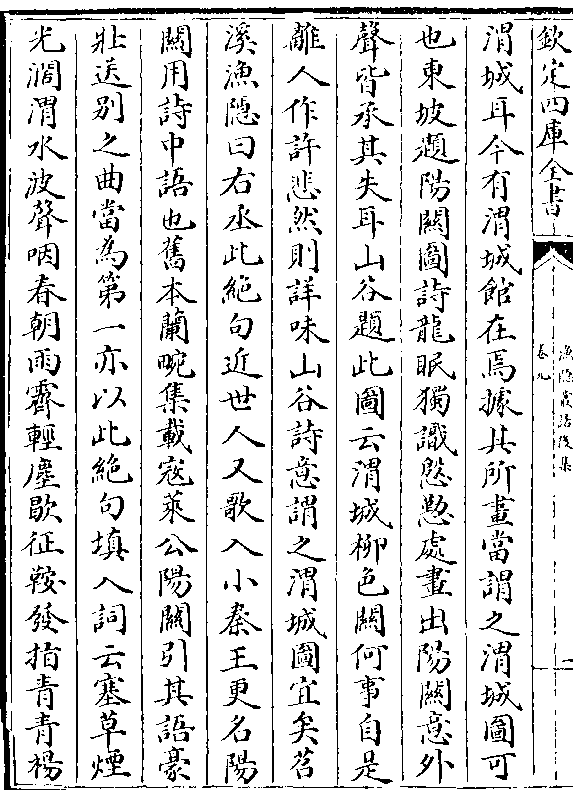 欽定四庫全書
漁隱叢話後集
卷九
渭城耳今有渭城館在焉據其所畫當謂之渭城圖可
也東坡題陽關圖詩龍眠獨識慇懃處畫出陽關意外
聲皆承其失耳山谷題此圖云渭城柳色關何事自是
離人作許悲然則詳味山谷詩意謂之渭城圖宜矣苕
溪漁隱曰右丞此絕句近世人又歌入小秦王更名陽
關用詩中語也舊本蘭畹集載寇萊公陽關引其語豪
壯送別之曲當為第一亦以此絕句填入詞云塞草煙
光濶渭水波聲咽春朝雨霽輕塵歇征鞍發指青青楊